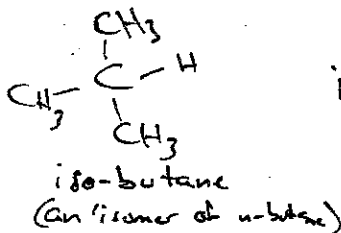 CH3
CH3 - C - H
CH3
iso-butane
(an isomer of n-butane)